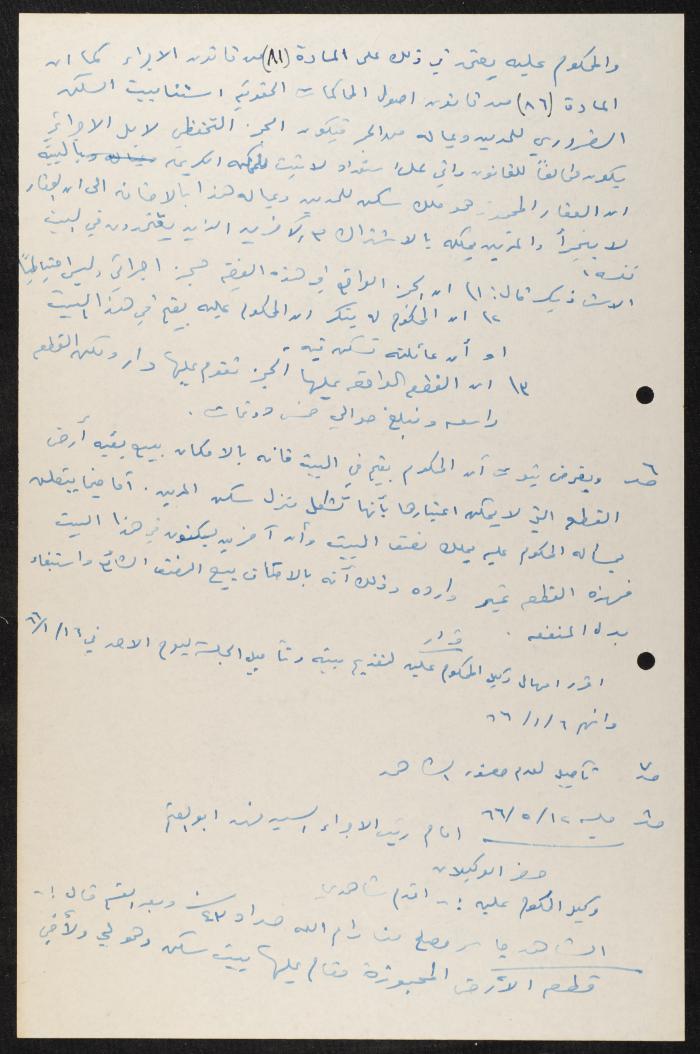 والمحكوم عليه يعتمد في ذلك على المادة (٨١) من قانون الاجراء كما ان
المادة (٨٦) من قانون اصول المحاكمات الحقوقية استثنا بيت السكن
الضروري للمدين وعياله من الحجز فيكون الحجز التحفظي لا بل الاجرائي
يكون مخالفاً للقانون واني على استعداد لاثبت للمحكمه الكريمة بالبينة
ان العقار المحجوز هو ملك سكن للمدين وعياله هذا بالاضافة الى ان العقار
لا يتجزأ والمدين يملكه بالاشتراك مع آخرين الذين يقيمون في البيت
نفسه.
الاستاذ قال: ١) ان الحجز الواقع في هذه القضية حجز اجرائي وليس احتياطياً
٢) ان المحكوم لا ينكر ان المحكوم عليه يقيم في هذا البيت
او أن عائلته تسكن فيه.
٣) ان القطع الواقع عليها الحجز تقوم عليها دار ولكن القطع
واسعه وتبلغ حوالي خمس دونمات.
ص٦ وبفرض ثبوت أن المحكوم يقيم في البيت فانه بالامكان بيع بقية أرض
القطع التي لا يمكن اعتبارها بأنها تشكل منزل سكن المدين. أما فيما يتعلق
بمسألة المحكوم عليه يملك نصف البيت وأن آخرين يسكنون في هذا البيت
فهذه القطع غير وارده وذلك أنه بالامكان بيع النصف الشائع واستيفاء
بدل المنفعه.
قرار
اقرر امهال وكيل المحكوم عليه لتقديم بينة وتأجيل الجلسة ليوم الاحد في ١٦/١/٦٦
وافهم ٦/١/٦٦
ص٧ تأجيل لعدم حضور الشاهد
ص٨ جلسه ١٢/٥/٦٦ امام رئيس الاجراء السيد فهد ابو الغنم
حضر الوكيلان
وكيل المحكوم عليه :- اقدم شاهدي
الشاهد من رام الله عمره ٤٣ سنه وبعد القسم قال :-
قطع الأرض المحجوزة مقام عليها بيت سكن وهو لي ولأخي